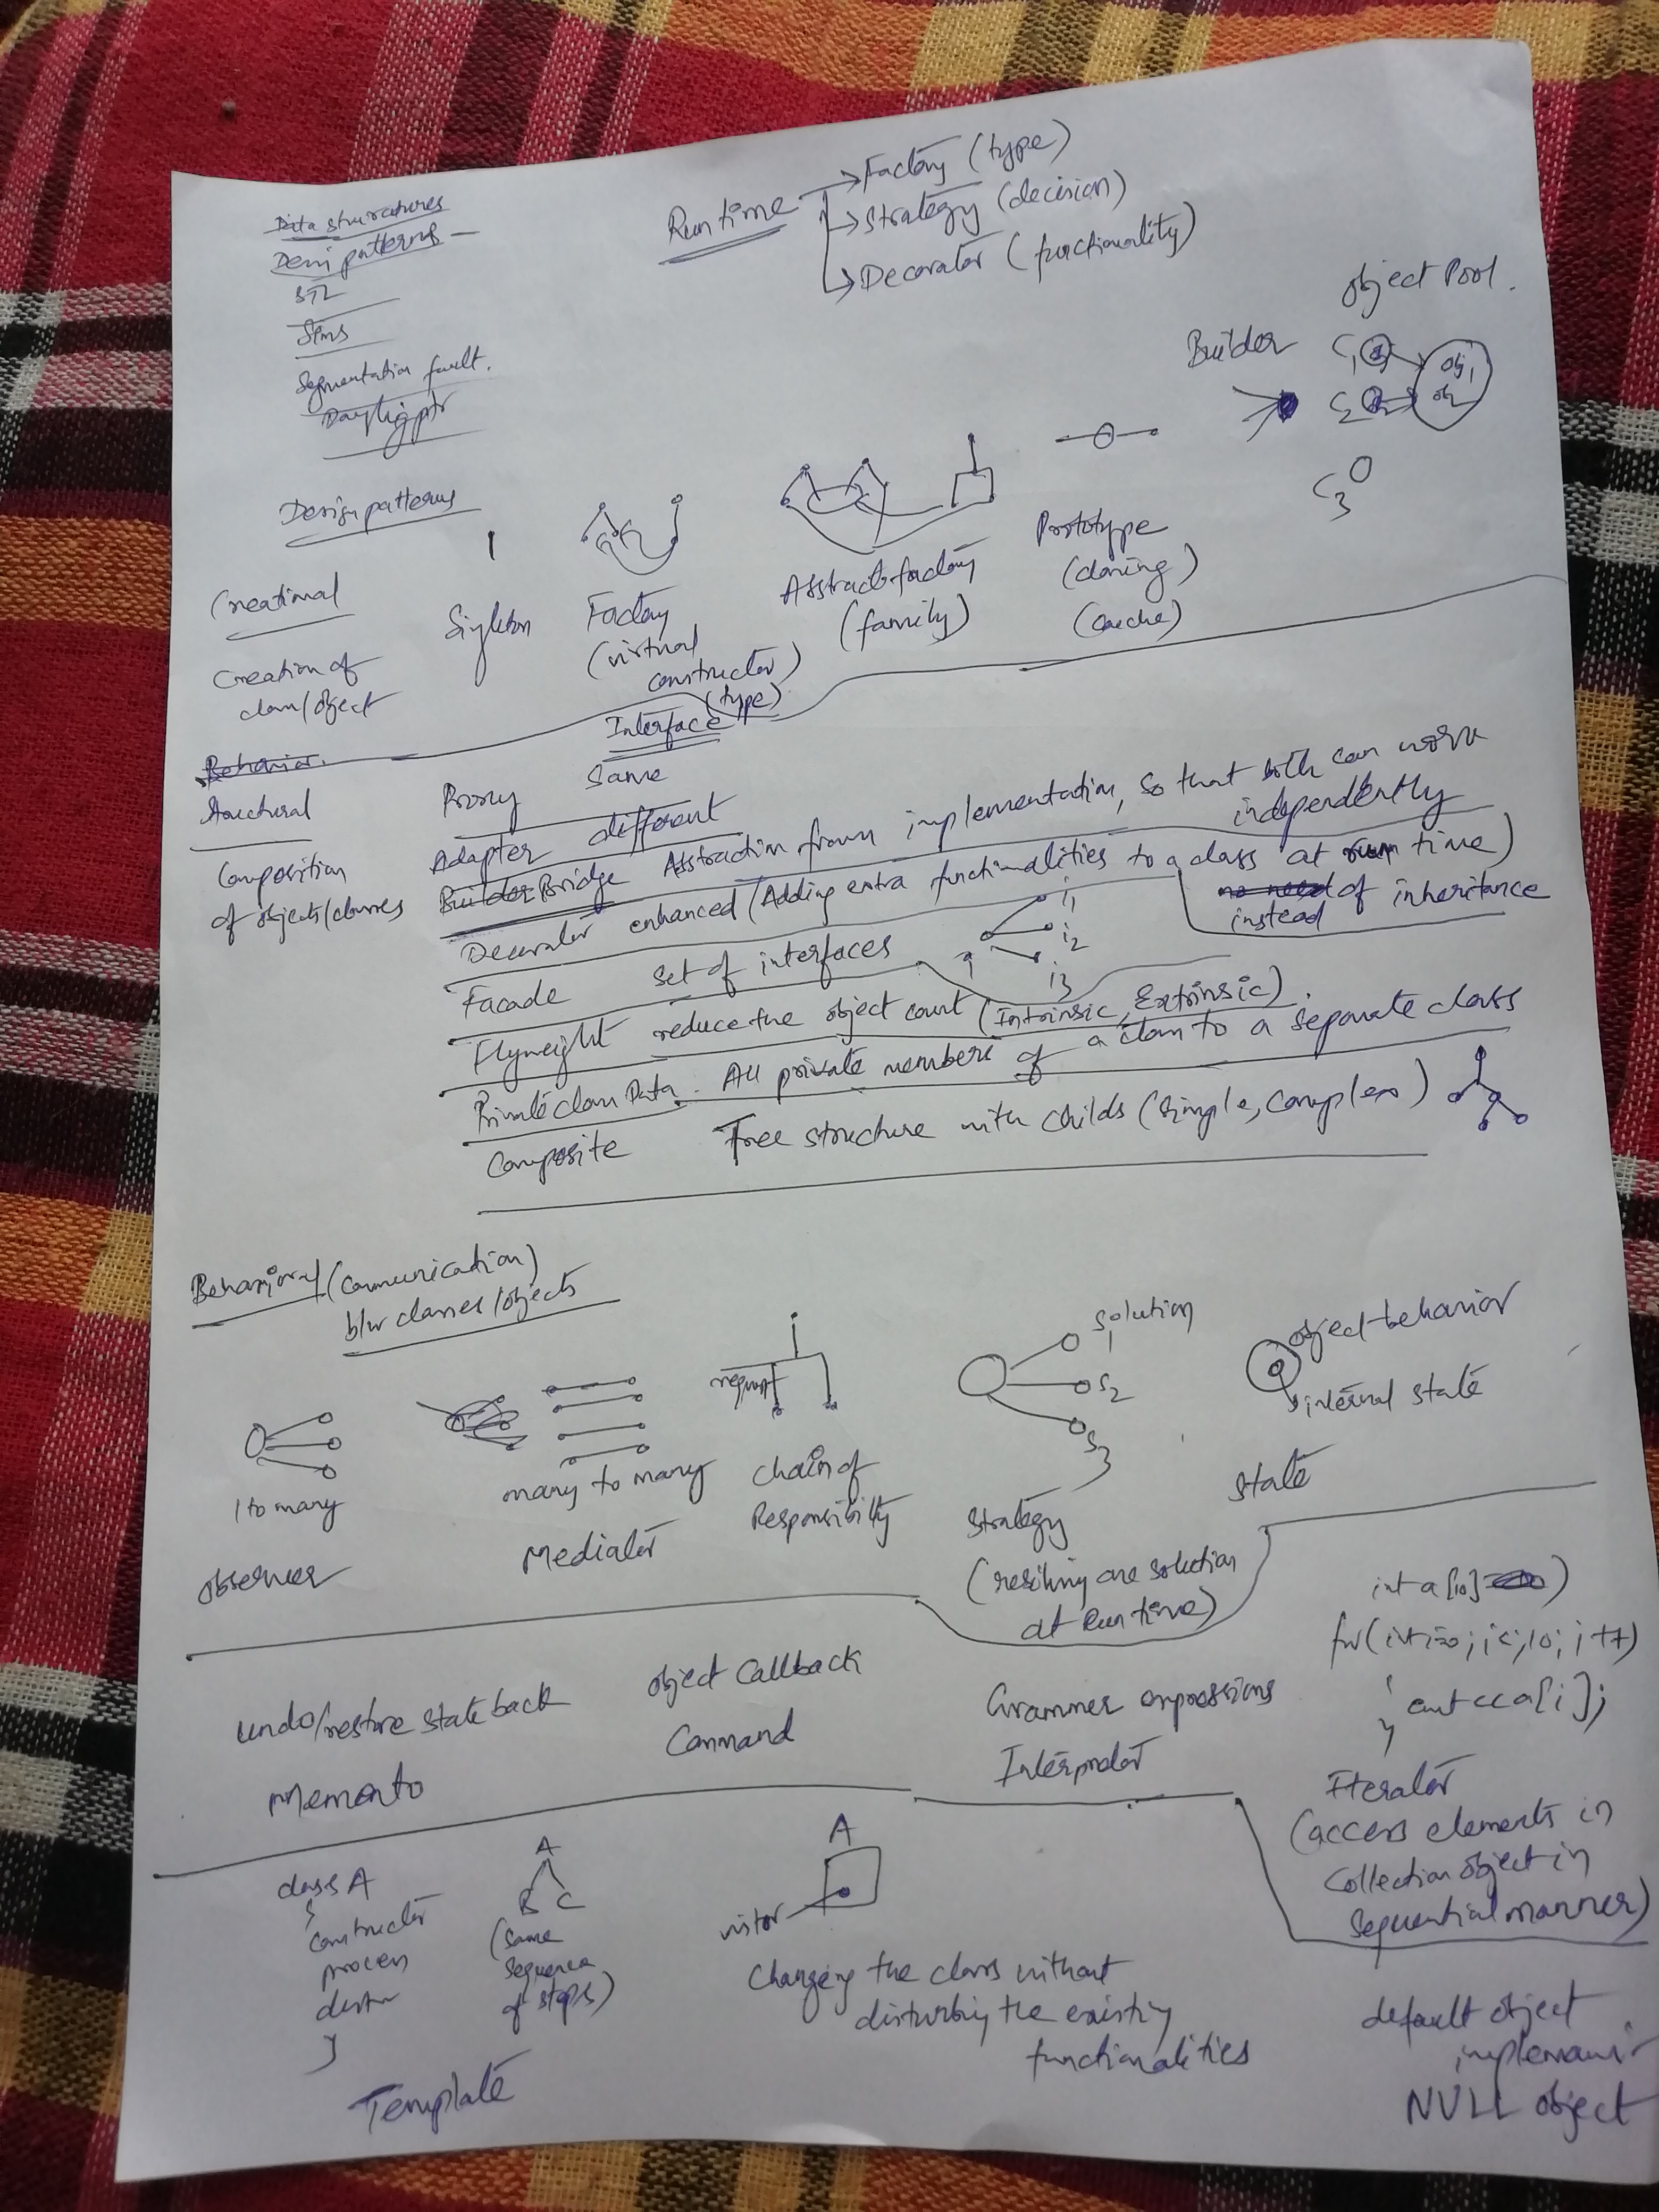 Data structures
Desin patterns
STL
Segmentation fault.
Runtime
Factory (type)
Strategy (decision)
Decorator (functionality)
Object Pool.
Builder
C1
obj1
C2
obj2
C3
Design patterns
Creational
Creation of
class/object
Singleton
Factory
(virtual
constructor)
(type)
Abstract factory
(family)
Prototype
(cloning)
(cache)
Interface
Behavior.
Structural
Composition
of objects/classes
Proxy Same
Adapter different
Builder Bridge Abstraction from implementation, so that both can work
independently
Decorator enhanced (Adding extra functionalities to a class at run time)
no need of inheritance
instead
Facade set of interfaces
i1
i2
i3
Flyweight reduce the object count (Intrinsic, Extrinsic).
Private class Data. All private members of a class to a separate class
Composite Tree structure with childs (Simple, complex)
Behavioral (Communication)
b/w classes/objects
1 to many
Observer
many to many
Mediator
request
Chain of
Responsibility
Solution
S1
S2
S3
Strategy
at Run time)
object behavior
internal state
State
undo/restore state back
Memento
object Callback
Command
Grammer expressions
Interpretor
int a[10]
for(int i=0; i<10; i++)
{
cout<<a[i];
}
Iterator
(access elements in
Collection object in
Sequential manner)
class A
{
constructor
process
}
A
B C
(Same
sequence
of steps)
Template
A
vistor
Changing the class without
disturbing the existing
functionalities
default object
NULL object